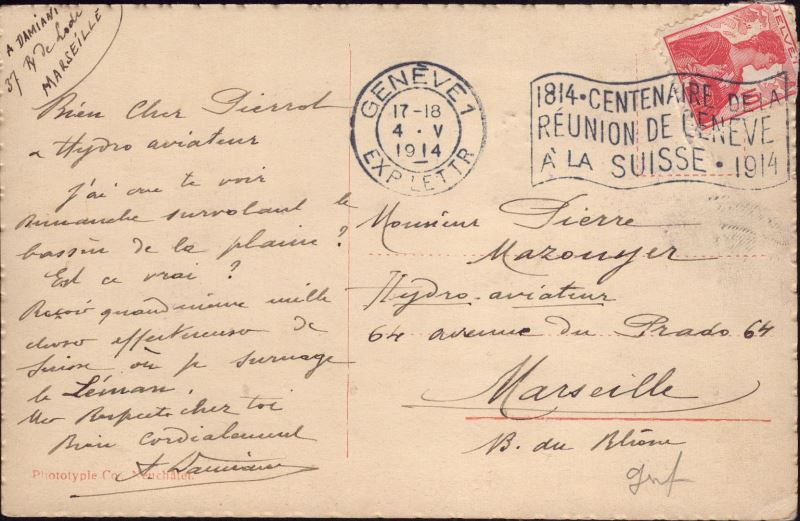 A DAMIANI
37 R de Lodi
MARSEILLE
Bien Cher Pierrot
Hydro aviateur
J'ai cru te voir
Dimanche survolant le
bassin de la plaine ?
Est ce vrai ?
Reçois quand même mille
choses affectueuses de
Suisse où je surnage
le Léman.
Mes Respects chez toi
Bien cordialement
A Damiani
Phototypie Co., Neuchâtel.
GENÈVE 1
17-18
4 · V
1914
EXP. LETTR
1814 · CENTENAIRE DE LA
RÉUNION DE GENÈVE
À LA SUISSE · 1914
HELVE
Monsieur Pierre
Mazouyer
Hydro-aviateur
64 avenue du Prado 64
Marseille
B. du Rhône